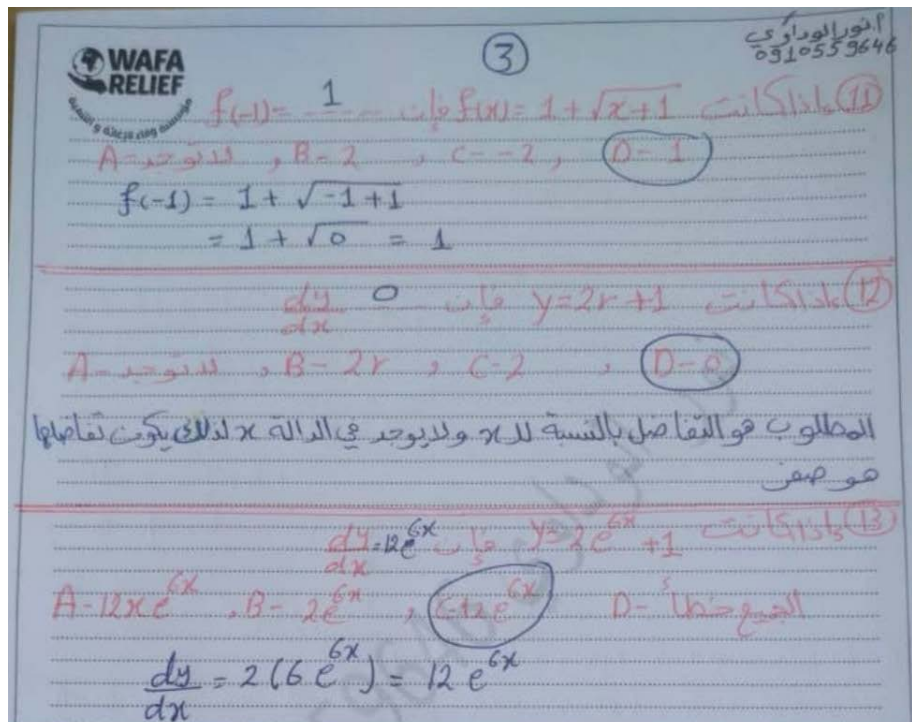 أ. نور الوداوي
0910559646
WAFA
RELIEF
3
11 إذا كانت f(x) = 1 + √x+1 فإن f(-1) = 1
A - لا توجد , B - 2 , C - -2 , D - 1
f(-1) = 1 + √-1+1
= 1 + √0 = 1
12 إذا كانت y = 2r + 1 فإن dy/dx 0
A - لا توجد , B - 2r , C - 2 , D - 0
المطلوب هو التفاضل بالنسبة للـ x ولا يوجد في الدالة x لذلك يكون تفاضلها
هو صفر
13 إذا كانت y = 2e^6x + 1 فإن dy/dx = 12e^6x
A - 12xe^6x , B - 2e^6x , C - 12e^6x D - الجميع خطأ
dy/dx = 2(6e^6x) = 12e^6x